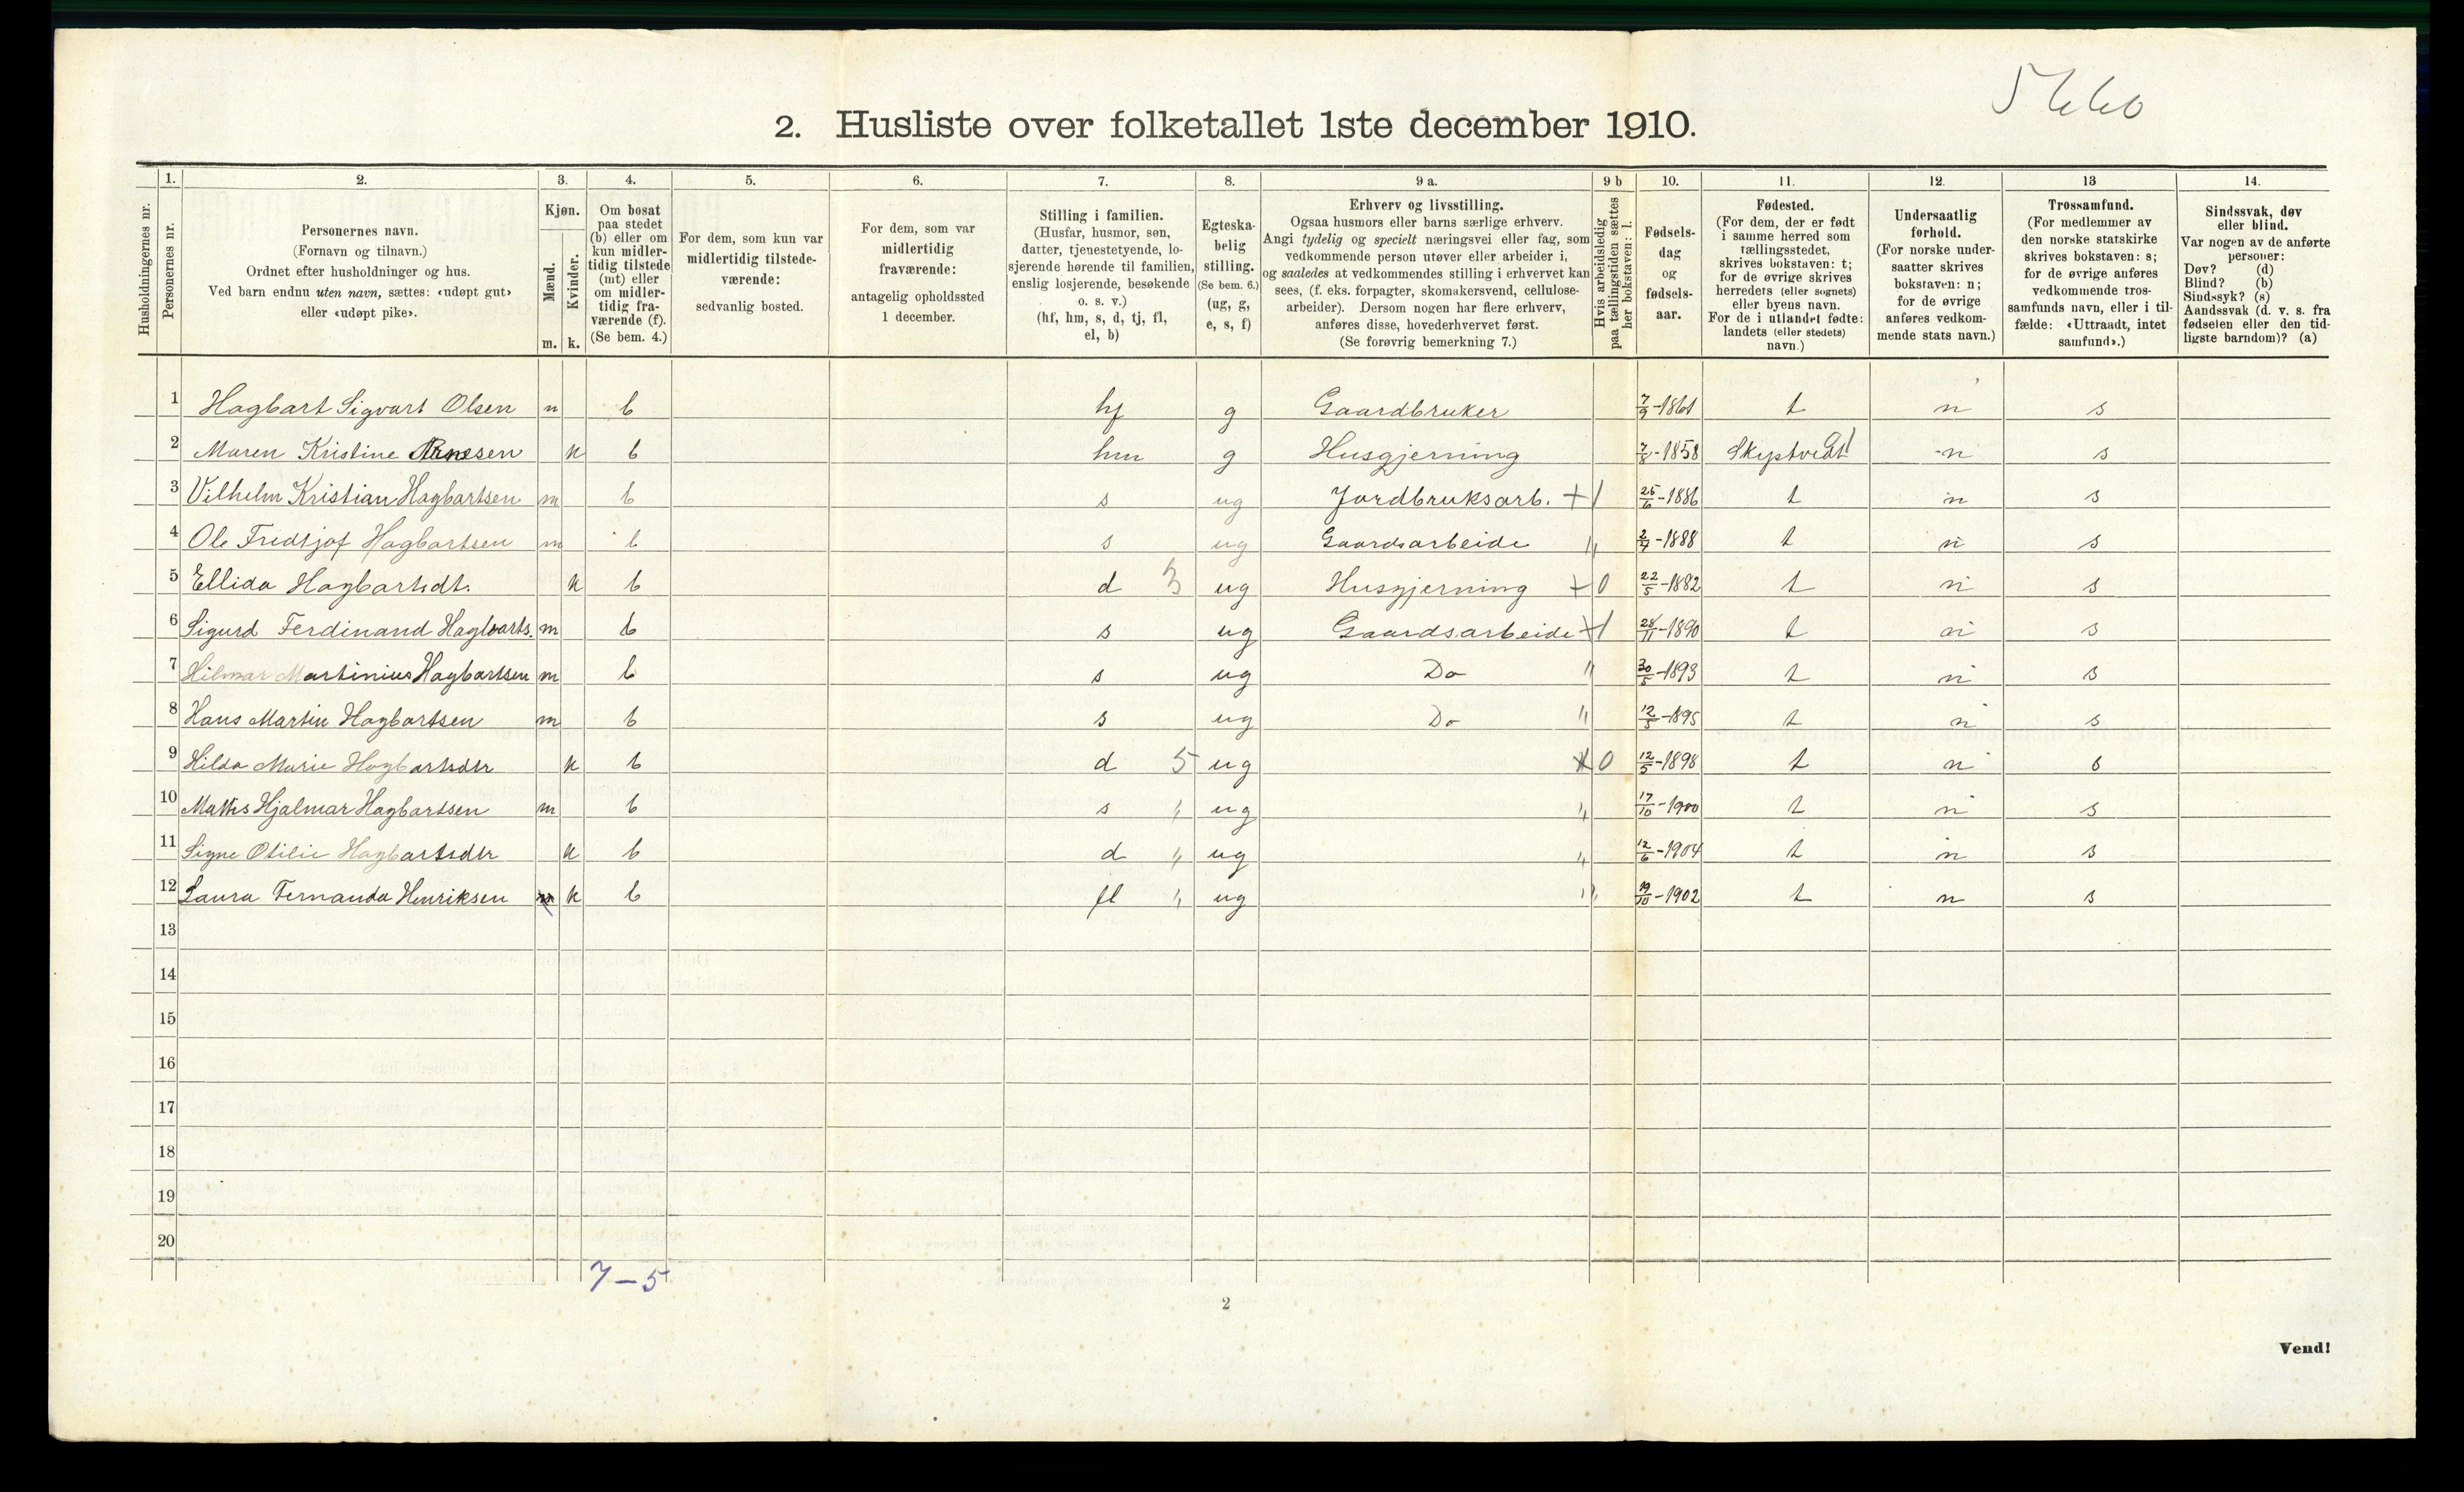 5660
2. Husliste over folketallet 1ste december 1910.
1. 2. 3. 4. 5. 6. 7. 8. 9 a. 9 b 10. 11. 12. 13 14.
Husholdningernes nr.
Personernes nr.
Personernes navn.
(Fornavn og tilnavn.)
Ordnet efter husholdninger og hus.
Ved barn endnu uten navn, sættes: «udøpt gut»
eller «udøpt pike».
Kjøn.
Mænd.
Kvinder.
m. k.
Om bosat
paa stedet
(b) eller om
kun midler-
tidig tilstede
(mt) eller
om midler-
tidig fra-
værende (f).
(Se bem. 4.)
For dem, som kun var
midlertidig tilstede-
værende:
sedvanlig bosted.
For dem, som var
midlertidig
fraværende:
antagelig opholdssted
1 december.
Stilling i familien.
(Husfar, husmor, søn,
datter, tjenestetyende, lo-
sjerende hørende til familien,
enslig losjerende, besøkende
o. s. v.)
(hf, hm, s, d, tj, fl,
el, b)
Egteska-
belig
stilling.
(Se bem. 6.)
(ug, g,
e, s, f)
Erhverv og livsstilling.
Ogsaa husmors eller barns særlige erhverv.
Angi tydelig og specielt næringsvei eller fag, som
vedkommende person utøver eller arbeider i,
og saaledes at vedkommendes stilling i erhvervet kan
sees, (f. eks. forpagter, skomakersvend, cellulose-
arbeider). Dersom nogen har flere erhverv,
anføres disse, hovederhvervet først.
(Se forøvrig bemerkning 7.)
Hvis arbeidsledig
paa tællingstiden sættes
her bokstaven: l.
Fødsels-
dag
og
fødsels-
aar.
Fødested.
(For dem, der er født
i samme herred som
tællingsstedet,
skrives bokstaven: t;
for de øvrige skrives
herredets (eller sognets)
eller byens navn.
For de i utlandet fødte:
landets (eller stedets)
navn.)
Undersaatlig
forhold.
(For norske under-
saatter skrives
bokstaven: n;
for de øvrige
anføres vedkom-
mende stats navn.)
Trossamfund.
(For medlemmer av
den norske statskirke
skrives bokstaven: s;
for de øvrige anføres
vedkommende tros-
samfunds navn, eller i til-
fælde: «Uttraadt, intet
samfund».)
Sindssvak, døv
eller blind.
Var nogen av de anførte
personer:
Døv? (d)
Blind? (b)
Sindssyk? (s)
Aandssvak (d. v. s. fra
fødselen eller den tid-
ligste barndom)? (a)
1 Hagbart Sigvart Olsen m b hf g Gaardbruker 7/9-1861 t n s
2 Maren Kristine Arnesen k b hm g Husgjerning 7/8-1858 Skiptvedt n s
3 Vilhelm Kristian Hagbartsen m b s ug Jordbruksarb. +1 25/6-1886 t n s
4 Ole Fredtjof Hagbartsen m b s ug Gaardsarbeide " 2/4-1888 t n s
5 Ellida Hagbartsdt. k b d 3 ug Husgjerning +0 22/5-1882 t n s
6 Sigurd Ferdinand Hagbarts. m b s ug Gaardsarbeide +1 28/11-1890 t n s
7 Hilmar Martinius Hagbartsen m b s ug Do " 30/5-1893 t n s
8 Hans Martin Hagbartsen m b s ug Do " 12/5-1895 t n s
9 Hilda Marie Hagbartsdtr k b d 5 ug +0 12/5-1898 t n s
10 Hjalmar Hagbartsen m b s " ug " 17/10-1900 t n s
11 Signe Otilie Hagbartsdtr k b d " ug " 12/6-1904 t n s
12 Laura Fernanda Henriksen m k b fl " ug " 19/10-1902 t n s
13
14
15
16
17
18
19
20
7-5
2
Vend!